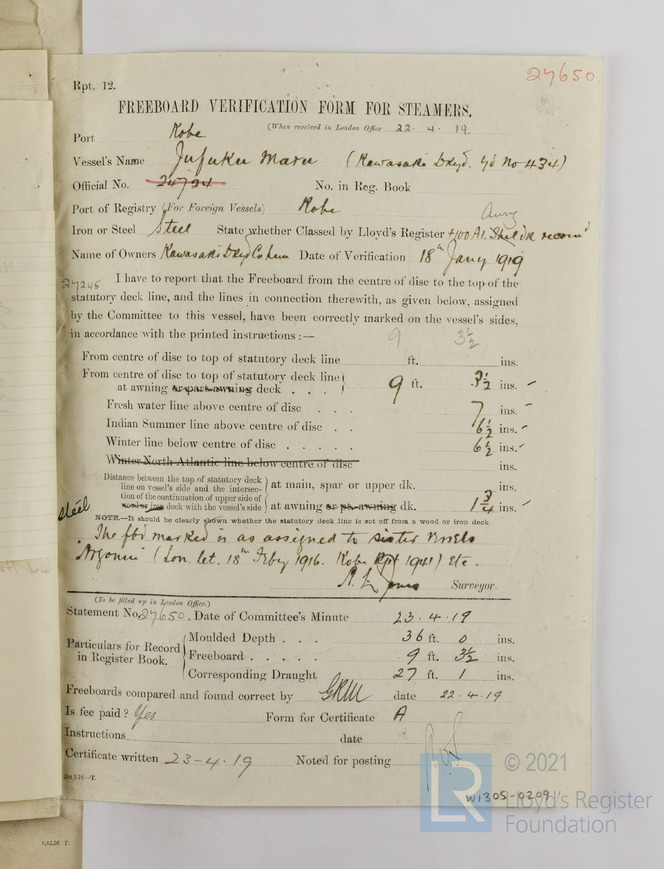 27650.
Rpt. 12.
FREEBOARD VERIFICATION FORM FOR STEAMERS.
(When received in London Office 22.4.19.
Port Kobe
Vessel's Name Jufuku Maru (Kawasaki Dkyd. Yd No 434)
Official No. 24724 No. in Reg. Book
Port of Registry (For Foreign Vessels) Kobe
Awng
Iron or Steel Steel State whether Classed by Lloyd's Register +100 A1. Shel dk recom'd
Name of Owners Kawasaki Dkyd Co Date of Verification 18th Jany 1919
27245 I have to report that the Freeboard from the centre of disc to the top of the
statutory deck line, and the lines in connection therewith, as given below, assigned
by the Committee to this vessel, have been correctly marked on the vessel's sides,
in accordance with the printed instructions :—
9 3½
From centre of disc to top of statutory deck line ft. ins.
From centre of disc to top of statutory deck line
at awning or part awning deck . . . . 9 ft. 3½ ins.
Fresh water line above centre of disc . . . 7 ins.
Indian Summer line above centre of disc . . 6½ ins.
Winter line below centre of disc . . . . . 6½ ins.
Winter North Atlantic line below centre of disc ins.
Distance between the top of statutory deck
line on vessel's side and the intersec-
tion of the continuation of upper side of
wood or iron deck with the vessel's side
at main, spar or upper dk. ins.
steel
at awning or pt. awning dk. 1¾ ins.
NOTE.—It should be clearly shown whether the statutory deck line is set off from a wood or iron deck.
The fbd marked is as assigned to sister vessels
Argonne (Lon. let. 18th Feby 1916. Kobe Rpt 1941) Etc.
A. L. Jones Surveyor.
(To be filled up in London Office.)
Statement No. 27650. Date of Committee's Minute 23.4.19
Particulars for Record
in Register Book.
Moulded Depth . . . 36 ft. 0 ins.
Freeboard . . . . . 9 ft. 3½ ins.
Corresponding Draught 27 ft. 1 ins.
Freeboards compared and found correct by GRM date 22.4.19
Is fee paid? Yes Form for Certificate A
Instructions date
Certificate written 23-4-19 Noted for posting
W1305-0209
© 2021
LR
Lloyd's Register
Foundation